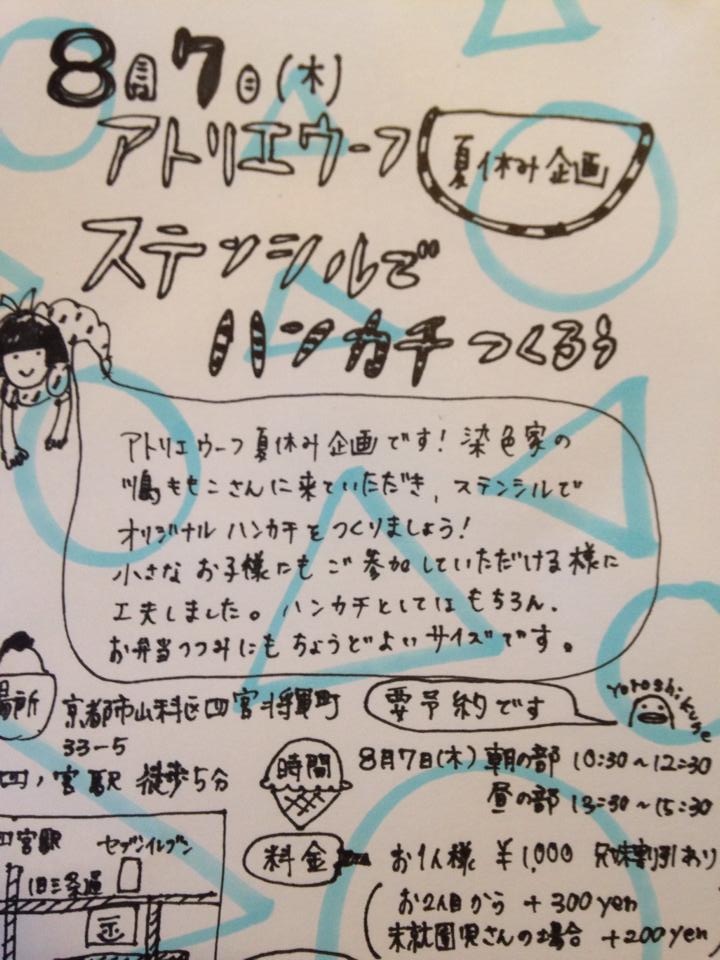 8月7日(木)
アトリエウーフ
夏休み企画
ステンシルで
ハンカチつくろう
アトリエウーフ夏休み企画です!染色家の
ももこさんに来ていただき、ステンシルで
オリジナルハンカチをつくりましょう!
小さなお子様にもご参加していただける様に
工夫しました。ハンカチとしてはもちろん、
お弁当つつみにもちょうどよいサイズです。
場所
京都市山科区四宮
33-5
四ノ宮駅 徒歩5分
要予約です
yoroshikune
時間
8月7日(木) 朝の部 10:30~12:30
昼の部 13:30~15:30
料金
お1人様 ¥1,000 兄妹割引あり
(お2人目から +300yen
未就園児さんの場合 +200yen)
四宮駅
セブンイレブン
旧三条通